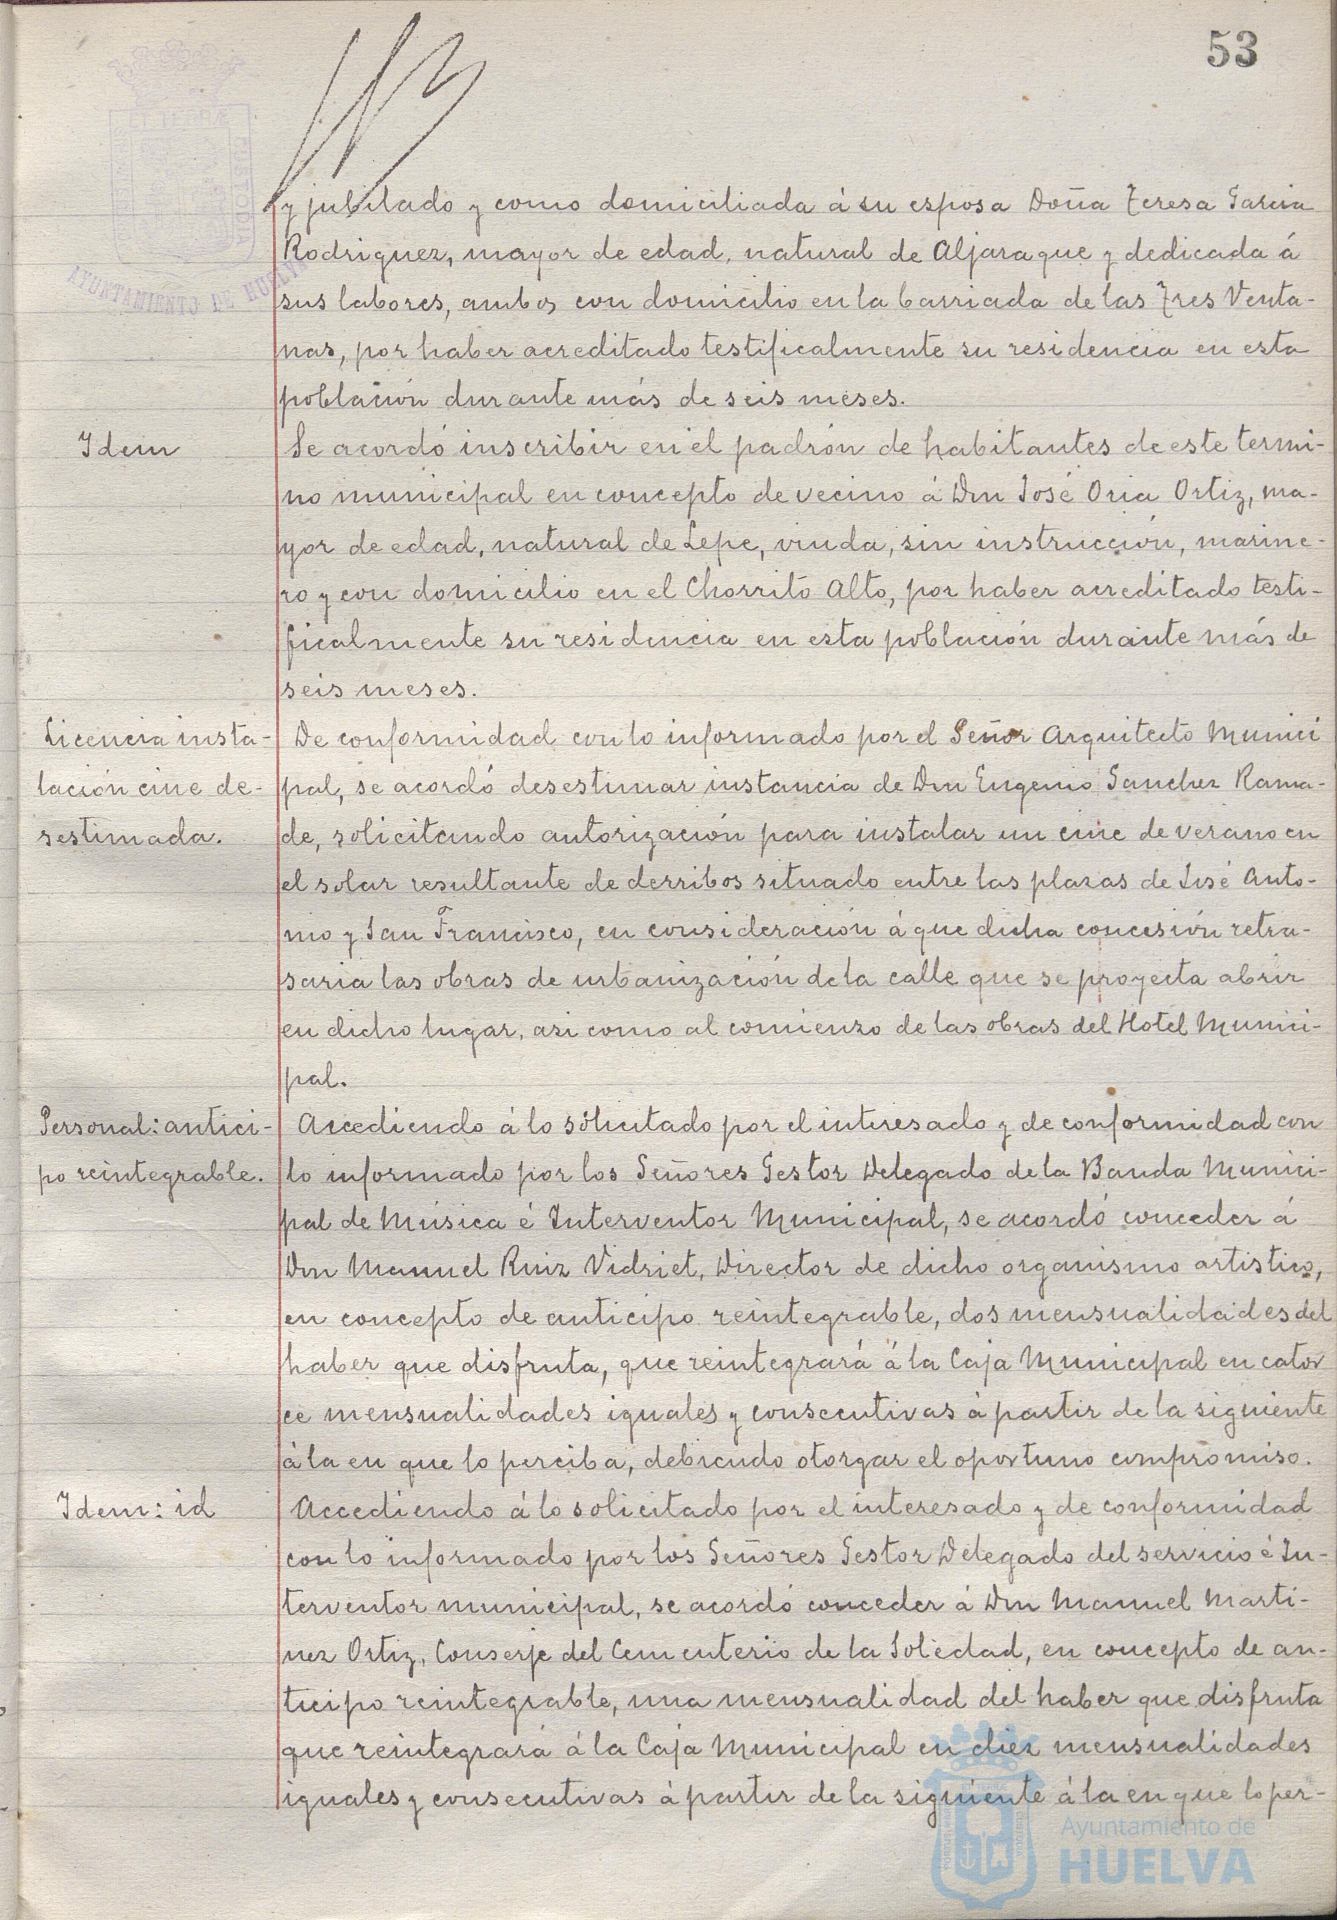 53
ET TERRÆ
CUSTODIA
AYUNTAMIENTO DE HUELVA
y jubilado y como domiciliada á su esposa Doña Teresa Garcia
Rodriguez, mayor de edad, natural de Aljaraque y dedicada á
sus labores, ambos con domicilio en la barriada de las Tres Venta-
nas, por haber acreditado testificalmente su residencia en esta
población durante más de seis meses.
Idem
Se acordó inscribir en el padrón de habitantes de este termi-
no municipal en concepto de vecino á Don José Oria Ortiz, ma-
yor de edad, natural de Lepe, viuda, sin instrucción, marine-
ro y con domicilio en el Chorrito Alto, por haber acreditado testi-
ficalmente su residencia en esta población durante más de
seis meses.
Licencia insta-
lación cine de-
sestimada.
De conformidad con lo informado por el Señor Arquitecto Munici
pal, se acordó desestimar instancia de Don Eugenio Sanchez Rama-
de, solicitando autorización para instalar un cine de verano en
el solar resultante de derribos situado entre las plazas de José Anto-
nio y San Francisco, en consideración á que dicha concesión retra-
saria las obras de urbanización de la calle que se proyecta abrir
en dicho lugar, asi como al comienzo de las obras del Hotel Munici-
pal.
Personal: antici-
po reintegrable.
Accediendo á lo solicitado por el interesado y de conformidad con
lo informado por los Señores Gestor Delegado de la Banda Munici-
pal de Música é Interventor Municipal, se acordó conceder á
Don Manuel Ruiz Vidriet, Director de dicho organismo artistico,
en concepto de anticipo reintegrable, dos mensualidades del
haber que disfruta, que reintegrará á la Caja Municipal en cator
ce mensualidades iguales y consecutivas á partir de la siguiente
á la en que lo perciba, debiendo otorgar el oportuno compromiso.
Idem: id
Accediendo á lo solicitado por el interesado y de conformidad
con lo informado por los Señores Gestor Delegado del servicio é In-
terventor municipal, se acordó conceder á Don Manuel Marti-
nez Ortiz, Conserje del Cementerio de la Soledad, en concepto de an-
ticipo reintegrable, una mensualidad del haber que disfruta
que reintegrará á la Caja Municipal en diez mensualidades
iguales y consecutivas á partir de la siguiente á la en que lo per-
Ayuntamiento de
HUELVA